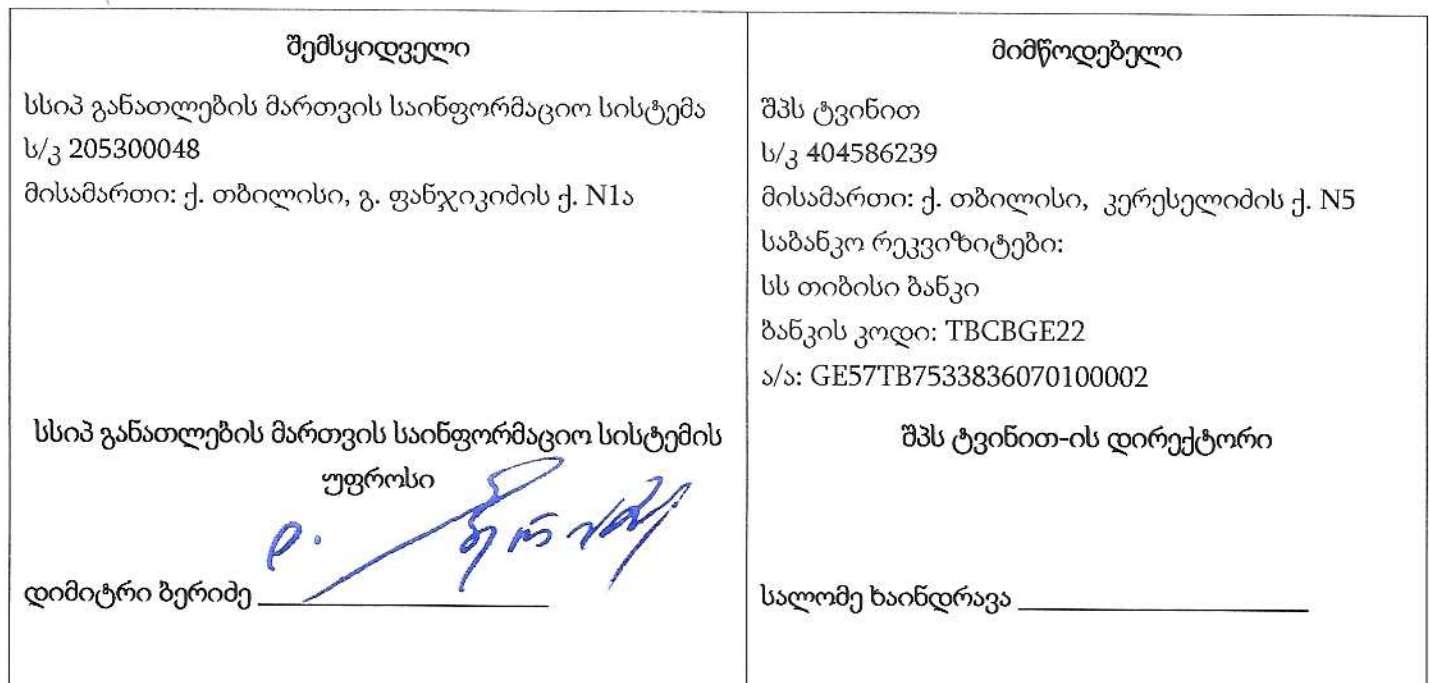 შემსყიდველი
სსიპ განათლების მართვის საინფორმაციო სისტემა
ს/კ 205300048
მისამართი: ქ. თბილისი, გ. ფანჯიკიძის ქ. N1ა
სსიპ განათლების მართვის საინფორმაციო სისტემის
უფროსი
დ. ბერიძე
დიმიტრი ბერიძე
მიმწოდებელი
შპს ტვინით
ს/კ 404586239
მისამართი: ქ. თბილისი, კერესელიძის ქ. N5
საბანკო რეკვიზიტები:
სს თიბისი ბანკი
ბანკის კოდი: TBCBGE22
ა/ა: GE57TB7533836070100002
შპს ტვინით-ის დირექტორი
სალომე ხაინდრავა